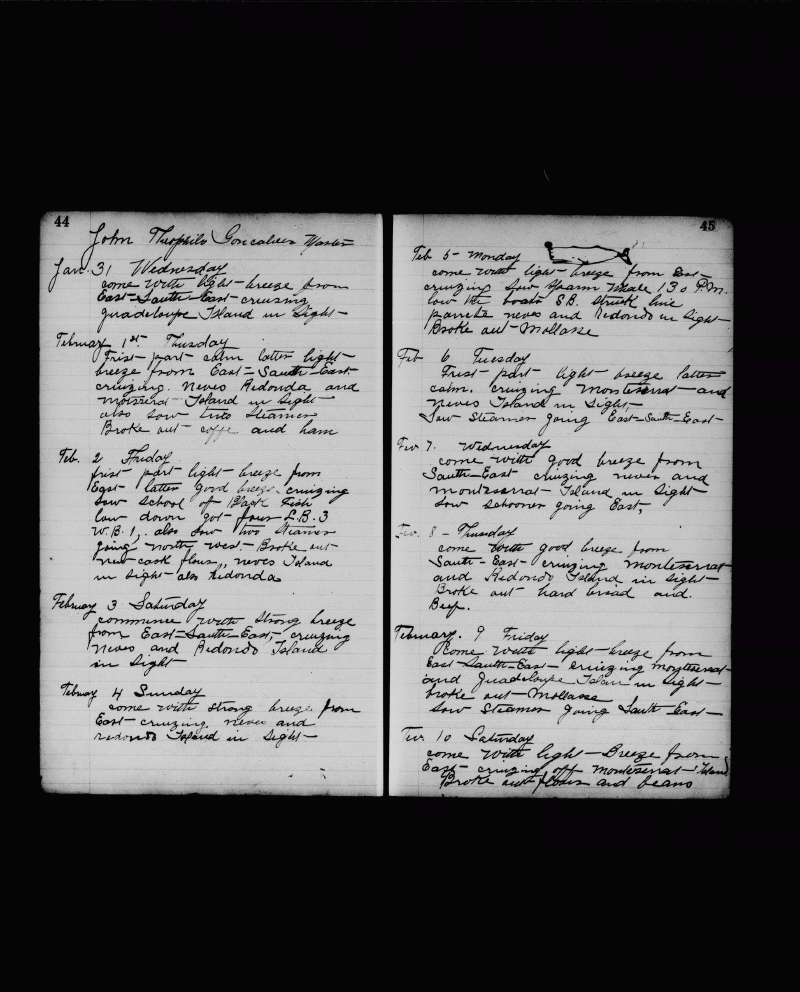 44
John Theophilo Goncalves Master
Jan. 31 Wednesday
come with light breeze from
East-South-East cruising
guadeloupe Island in sight
February 1st Thusday
Frist part calm latter light
breeze from East-South-East
cruizing. neves Redonda and
Island in sight
also sow two Steamer
Broke out coffe and ham
Feb. 2 Friday
frist part light breeze from
East latter good breeze cruizing
sow school of Black Fish
low down got four L.B. 3
W.B. 1, also sow two Steamer
going north west. Broke out
new cask flour, neves Island
in sight also Redonda
February 3 Saturday
commince with strong breeze
from East-South-East, cruizing
Neves and Redondo Island
in sight
February 4 Sunday
come with strong breeze from
East cruizing neves and
redondo Island in sight
45
Feb 5 - Monday
come with light breeze from East
cruizing sow Sparm Whale 1 30 P.M.
low the boats S.B. struck line
neves and Redondo in sight
Broke out Mollasse
Feb 6 Tuesday
Frist part light breeze latter
calm. cruizing Monteserrat and
neves Island in sight
Sow Steamer going East-South-East
Fev 7. Wednesday
come with good breeze from
South-East cruizing neves and
monteserrat Island in sight
sow schooner going East,
Fev. 8 - Thusday
come with good breeze from
South-East cruizing Monteserrat
and Redondo Island in sight
Broke out hard bread and
Beef.
February. 9 Friday
come with light breeze from
East-South-East cruizing Montserrat
and guadeloupe Islan in sight
broke out Mollasse
sow Steamer going South East
Fev 10 Saturday
come with light Breeze from
East cruizing off Monteserrat Island
Broke out flour and beans